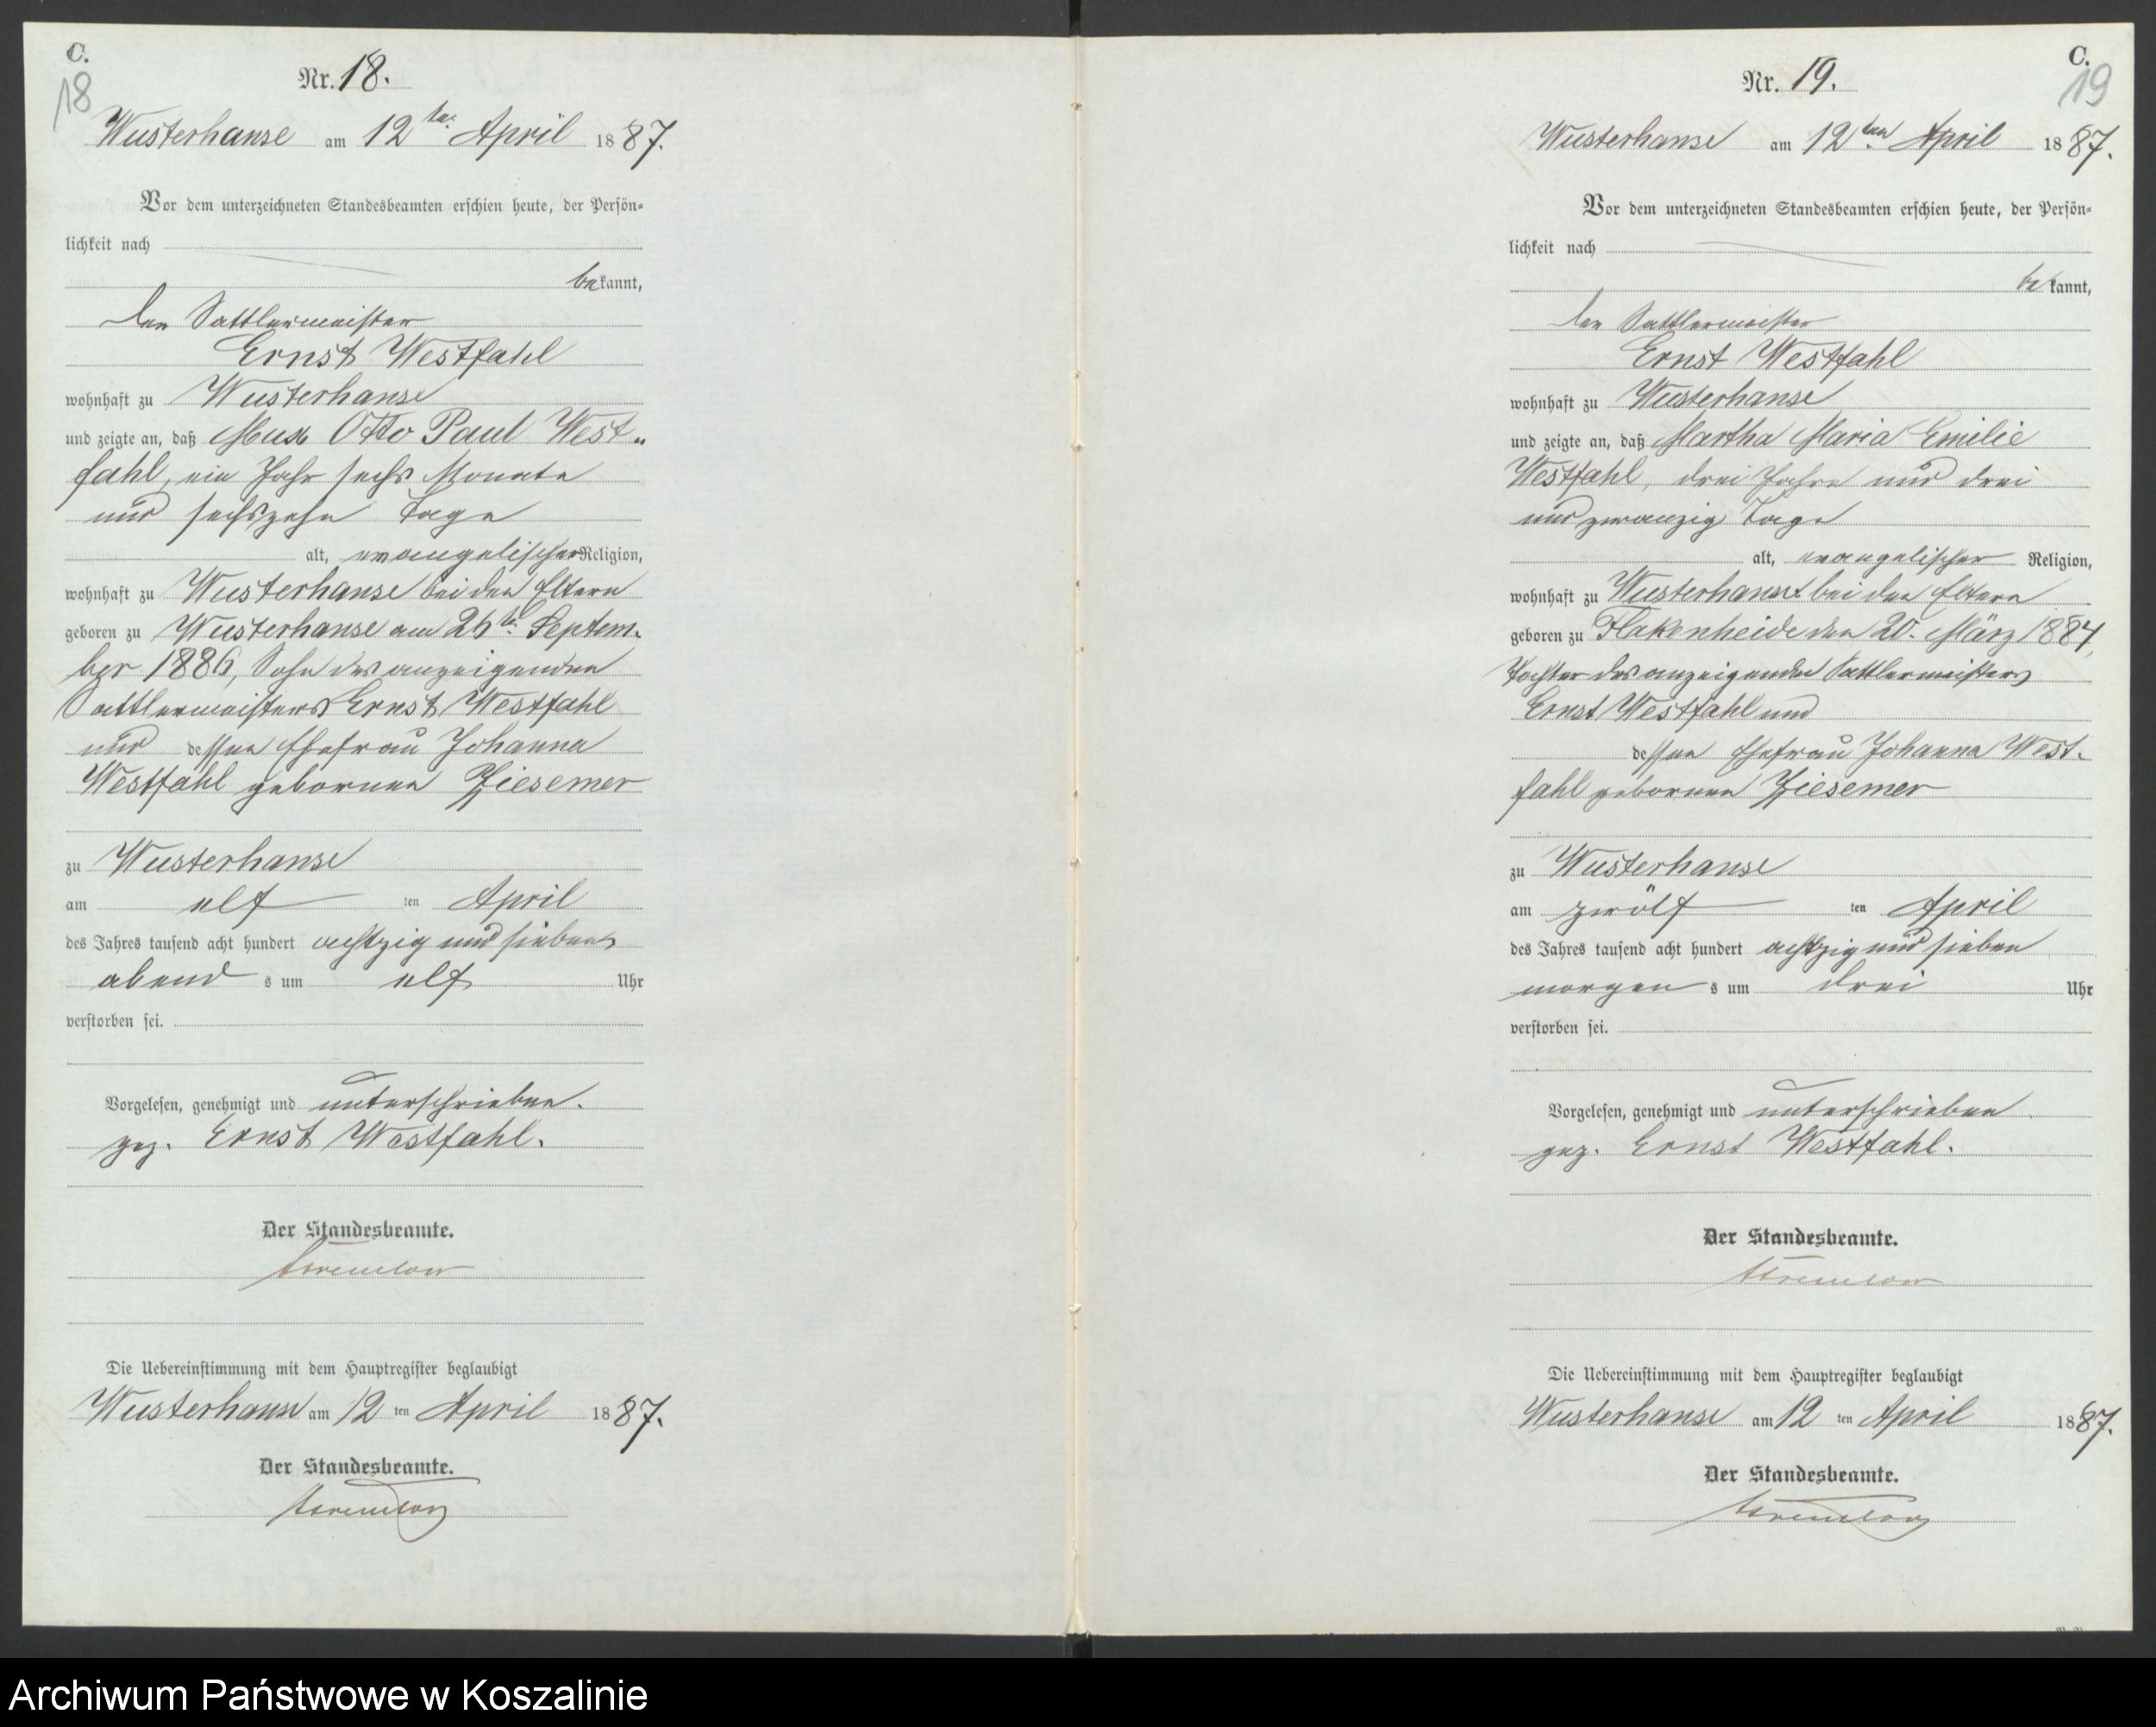 C.
18
Nr. 18.
Wusterhanse am 12ten April 1887.
Vor dem unterzeichneten Standesbeamten erschien heute, der Persön-
lichkeit nach
bekannt,
der Sattlermeister
Ernst Westfahl
wohnhaft zu Wusterhanse
und zeigte an, daß Max Otto Paul West-
fahl, ein Jahr sechs Monate
und sechszehn Tage
alt, evangelischer Religion,
wohnhaft zu Wusterhanse bei den Eltern
geboren zu Wusterhanse am 26ten Septem-
ber 1886, Sohn des anzeigenden
Sattlermeisters Ernst Westfahl
und dessen Ehefrau Johanna
Westfahl gebornen Ziesemer
zu Wusterhanse
am elf ten April
des Jahres tausend acht hundert achtzig und sieben
abend s um elf Uhr
verstorben sei.
Vorgelesen, genehmigt und unterschrieben.
gez. Ernst Westfahl.
Der Standesbeamte.
Die Uebereinstimmung mit dem Hauptregister beglaubigt
Wusterhanse am 12 ten April 1887.
Der Standesbeamte.
C.
19
Nr. 19.
Wusterhanse am 12ten April 1887.
Vor dem unterzeichneten Standesbeamten erschien heute, der Persön-
lichkeit nach
bekannt,
der Sattlermeister
Ernst Westfahl
wohnhaft zu Wusterhanse
und zeigte an, daß Martha Maria Emilie
Westfahl, drei Jahre und drei
und zwanzig Tage
alt, evangelischer Religion,
wohnhaft zu Wusterhanse bei den Eltern
geboren zu Flakenheide den 20. März 1884,
Tochter des anzeigenden Sattlermeisters
Ernst Westfahl und
dessen Ehefrau Johanna West-
fahl gebornen Ziesemer
zu Wusterhanse
am zwölf ten April
des Jahres tausend acht hundert achtzig und sieben
morgen s um drei Uhr
verstorben sei.
Vorgelesen, genehmigt und unterschrieben.
gez. Ernst Westfahl.
Der Standesbeamte.
Die Uebereinstimmung mit dem Hauptregister beglaubigt
Wusterhanse am 12 ten April 1887.
Der Standesbeamte.
Archiwum Państwowe w Koszalinie